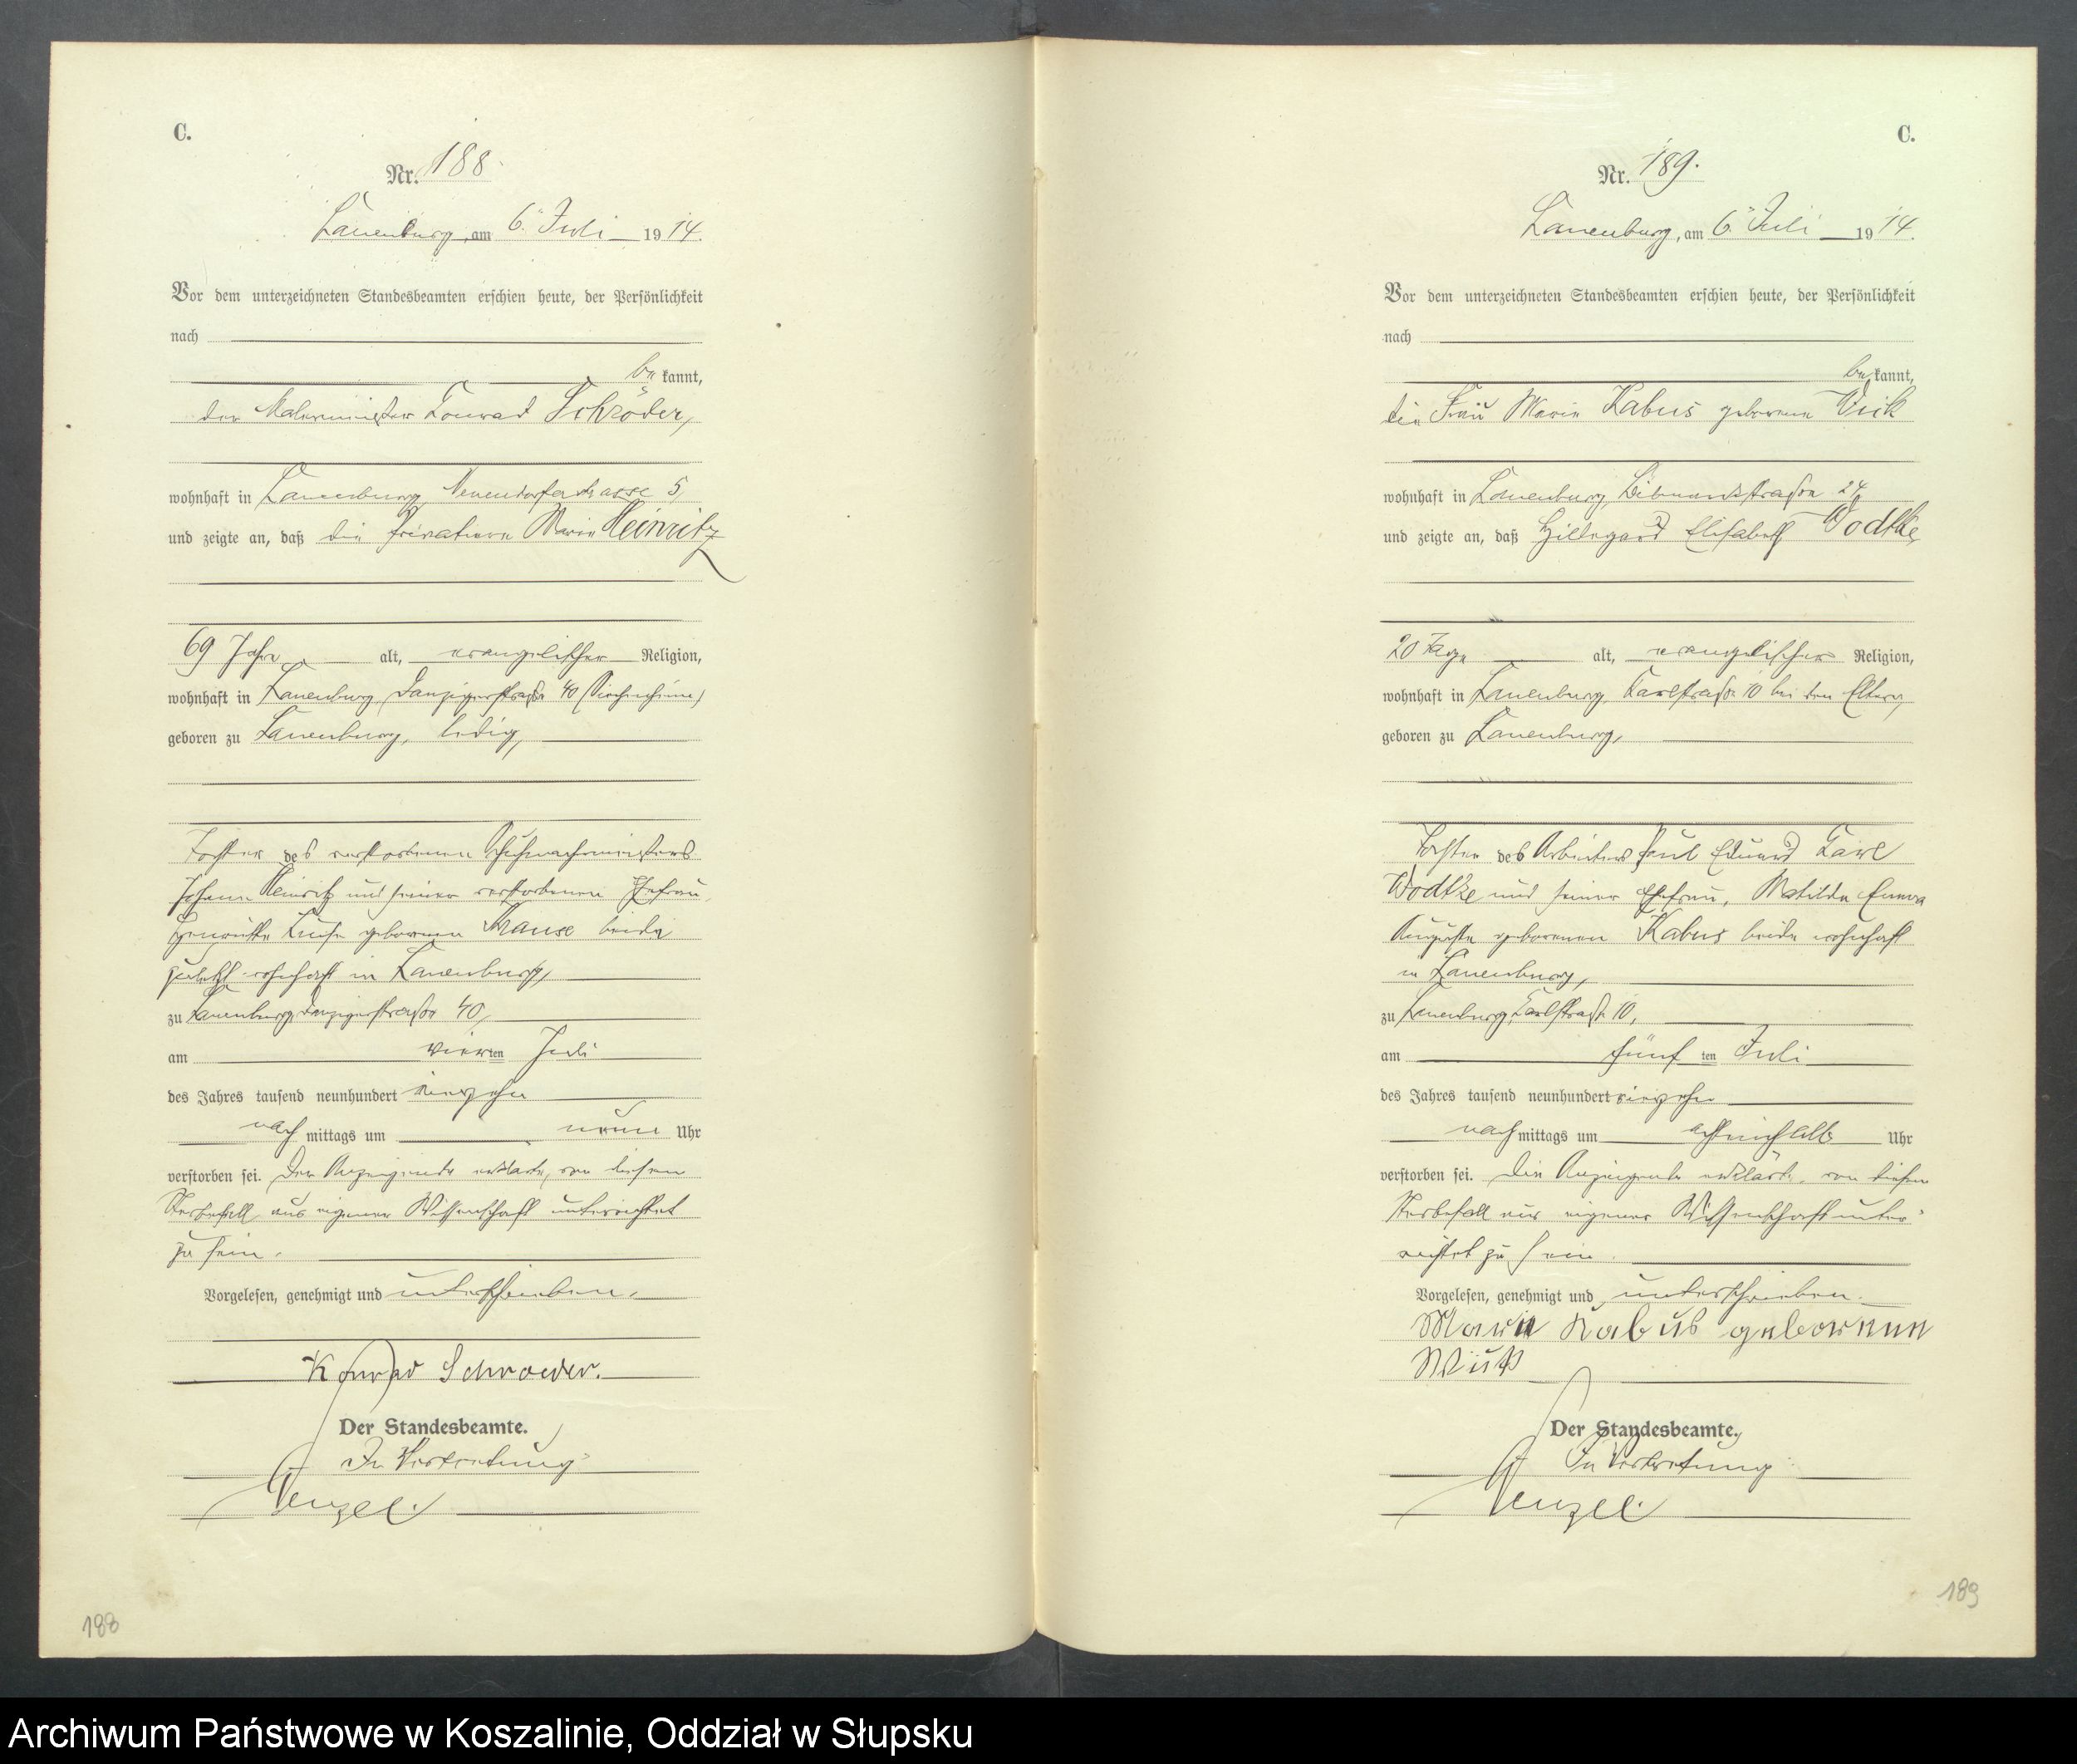 C.
Nr. 188.
Lauenburg, am 6. Juli 1914.
Vor dem unterzeichneten Standesbeamten erschien heute, der Persönlichkeit
nach
be kannt,
der Malermeister Conrad Schröder,
wohnhaft in Lauenburg, Neuendorferstrasse 5,
und zeigte an, daß die Privatiere Marie Heinritz
69 Jahre alt, evangelischer Religion,
wohnhaft in Lauenburg, Danzigerstraße 40
geboren zu Lauenburg, ledig,
Tochter des verstorbenen Schuhmachermeisters
Johann Heinritz und seiner verstorbenen Ehefrau,
Henriette Luise geborenen Krause beide
zuletzt wohnhaft in Lauenburg,
zu Lauenburg, Danzigerstraße 40,
am vierten Juli
des Jahres tausend neunhundert vierzehn
nach mittags um neun Uhr
verstorben sei. Der Anzeigende erklärte, von diesem
Sterbefall aus eigener Wissenschaft unterrichtet
zu sein.
Vorgelesen, genehmigt und unterschrieben.
Konrad Schroeder.
Der Standesbeamte.
In Vertretung
Wenzel.
188
C.
Nr. 189.
Lauenburg, am 6. Juli 1914.
Vor dem unterzeichneten Standesbeamten erschien heute, der Persönlichkeit
nach
be kannt,
die Frau Marie Kabus geborene
wohnhaft in Lauenburg, Bismarckstraße 24
und zeigte an, daß Hildegard Elisabeth Wodtke,
20 Tage alt, evangelischer Religion,
wohnhaft in Lauenburg, Karlstraße 10 bei den Eltern,
geboren zu Lauenburg,
Tochter des Arbeiters Paul Eduard Carl
Wodtke und seiner Ehefrau, Matilde Emma
Auguste geborenen Kabus beide wohnhaft
in Lauenburg,
zu Lauenburg, Karlstraße 10,
am fünf ten Juli
des Jahres tausend neunhundert vierzehn
nach mittags um achteinhalb Uhr
verstorben sei. Die Anzeigende erklärte, von diesem
Sterbefall aus eigener Wissenschaft unter-
richtet zu sein.
Vorgelesen, genehmigt und unterschrieben.
Marie Kabus geborenen
Der Standesbeamte.
In Vertretung
Wenzel.
189
Archiwum Państwowe w Koszalinie, Oddział w Słupsku